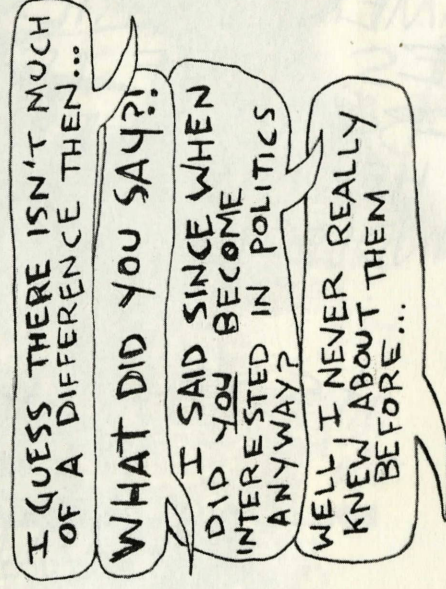 I GUESS THERE ISN'T MUCH
OF A DIFFERENCE THEN...
WHAT DID YOU SAY?!
I SAID SINCE WHEN
DID YOU BECOME
INTERESTED IN POLITICS
ANYWAY?
WELL I NEVER REALLY
KNEW ABOUT THEM
BEFORE...